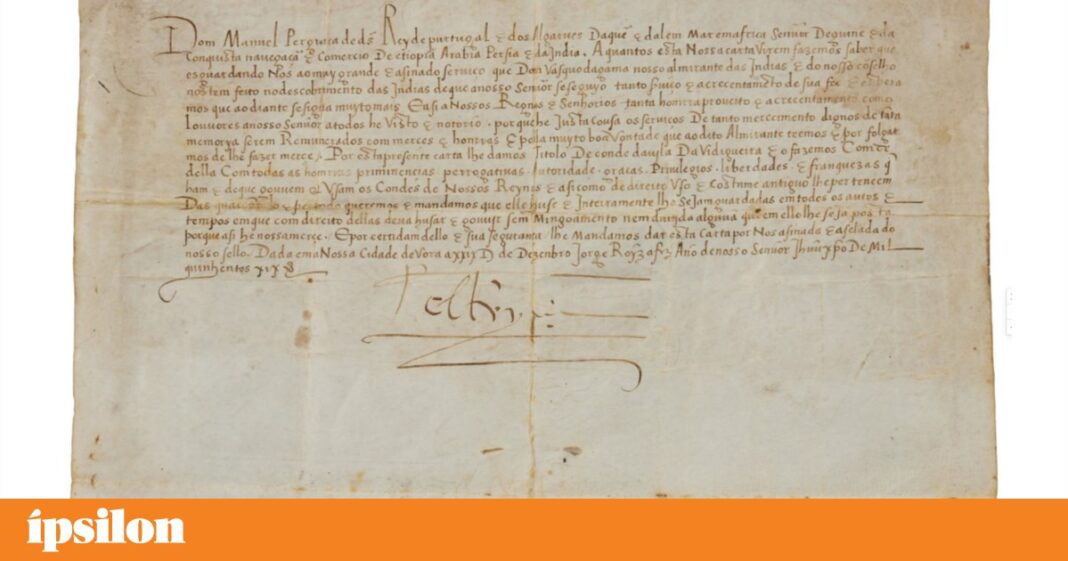 Dom Manuel Per graça de ds Rey de purtugal & dos Algarves Daquē & dalem Mar em africa Senūr De guine & da
Conquista navegaçã & Comercio De etiopia Arabia Persia & da India. A quantos esta Nossa carta virem fazemos saber que
esguardando Nos ao muy grande & asinado serviço que Dom Vasquo da gama nosso almirante das Indias & do nosso cōselho
nos tem feito no descobrimento das Indias de que a nosso Senūr se seguyo tanto & acrecentamēto de sua fee & espera
mos que ao diante se sigua muyto mais E asi a Nossos Reynos & Senhorios tanta homrra proveito & acrecentamento como
louvores a nosso Senūr a todos he Visto & notorio. por que he Justa Cousa os serviços De tanto merecimento dignos de tāta
memorya serem Remunerados com merces & homrras & polla muyto boa Vontade que ao dito Almirante teemos & por folgar
mos de lhe fazer merce. Por esta presente carta lhe damos Titolo De conde da vila Da Vidigueira & o fazemos Comde
della Com todas as homrras priminencias perrogativas. Autoridade. Graças. Privilegios. liberdades. & franquezas q̄
ham & de que gouvem & Usam os Condes de Nossos Reynos & asi como de direito Uso & Costume antiguo lhe pertencem
Das quaes queremos & mandamos que elle huse & Inteiramente lhe Sejam guardadas em todos os autos &
tempos em que com direito dellas deva husar & gouvir sem Mingoamento nem duvida algūa que em ello lhe seja posta
porque asi he nossa merçe. E por certidam dello & sua segurança lhe Mandamos dar esta Carta por Nos asinada & aselada do
nosso sello. Dada em a Nossa Cidade de Vora a xxix D de Dezenbro Jorge Roiz a fez Año de nosso Senūr Jhūu xpo De Mil
quinhentos xix
ípsilon